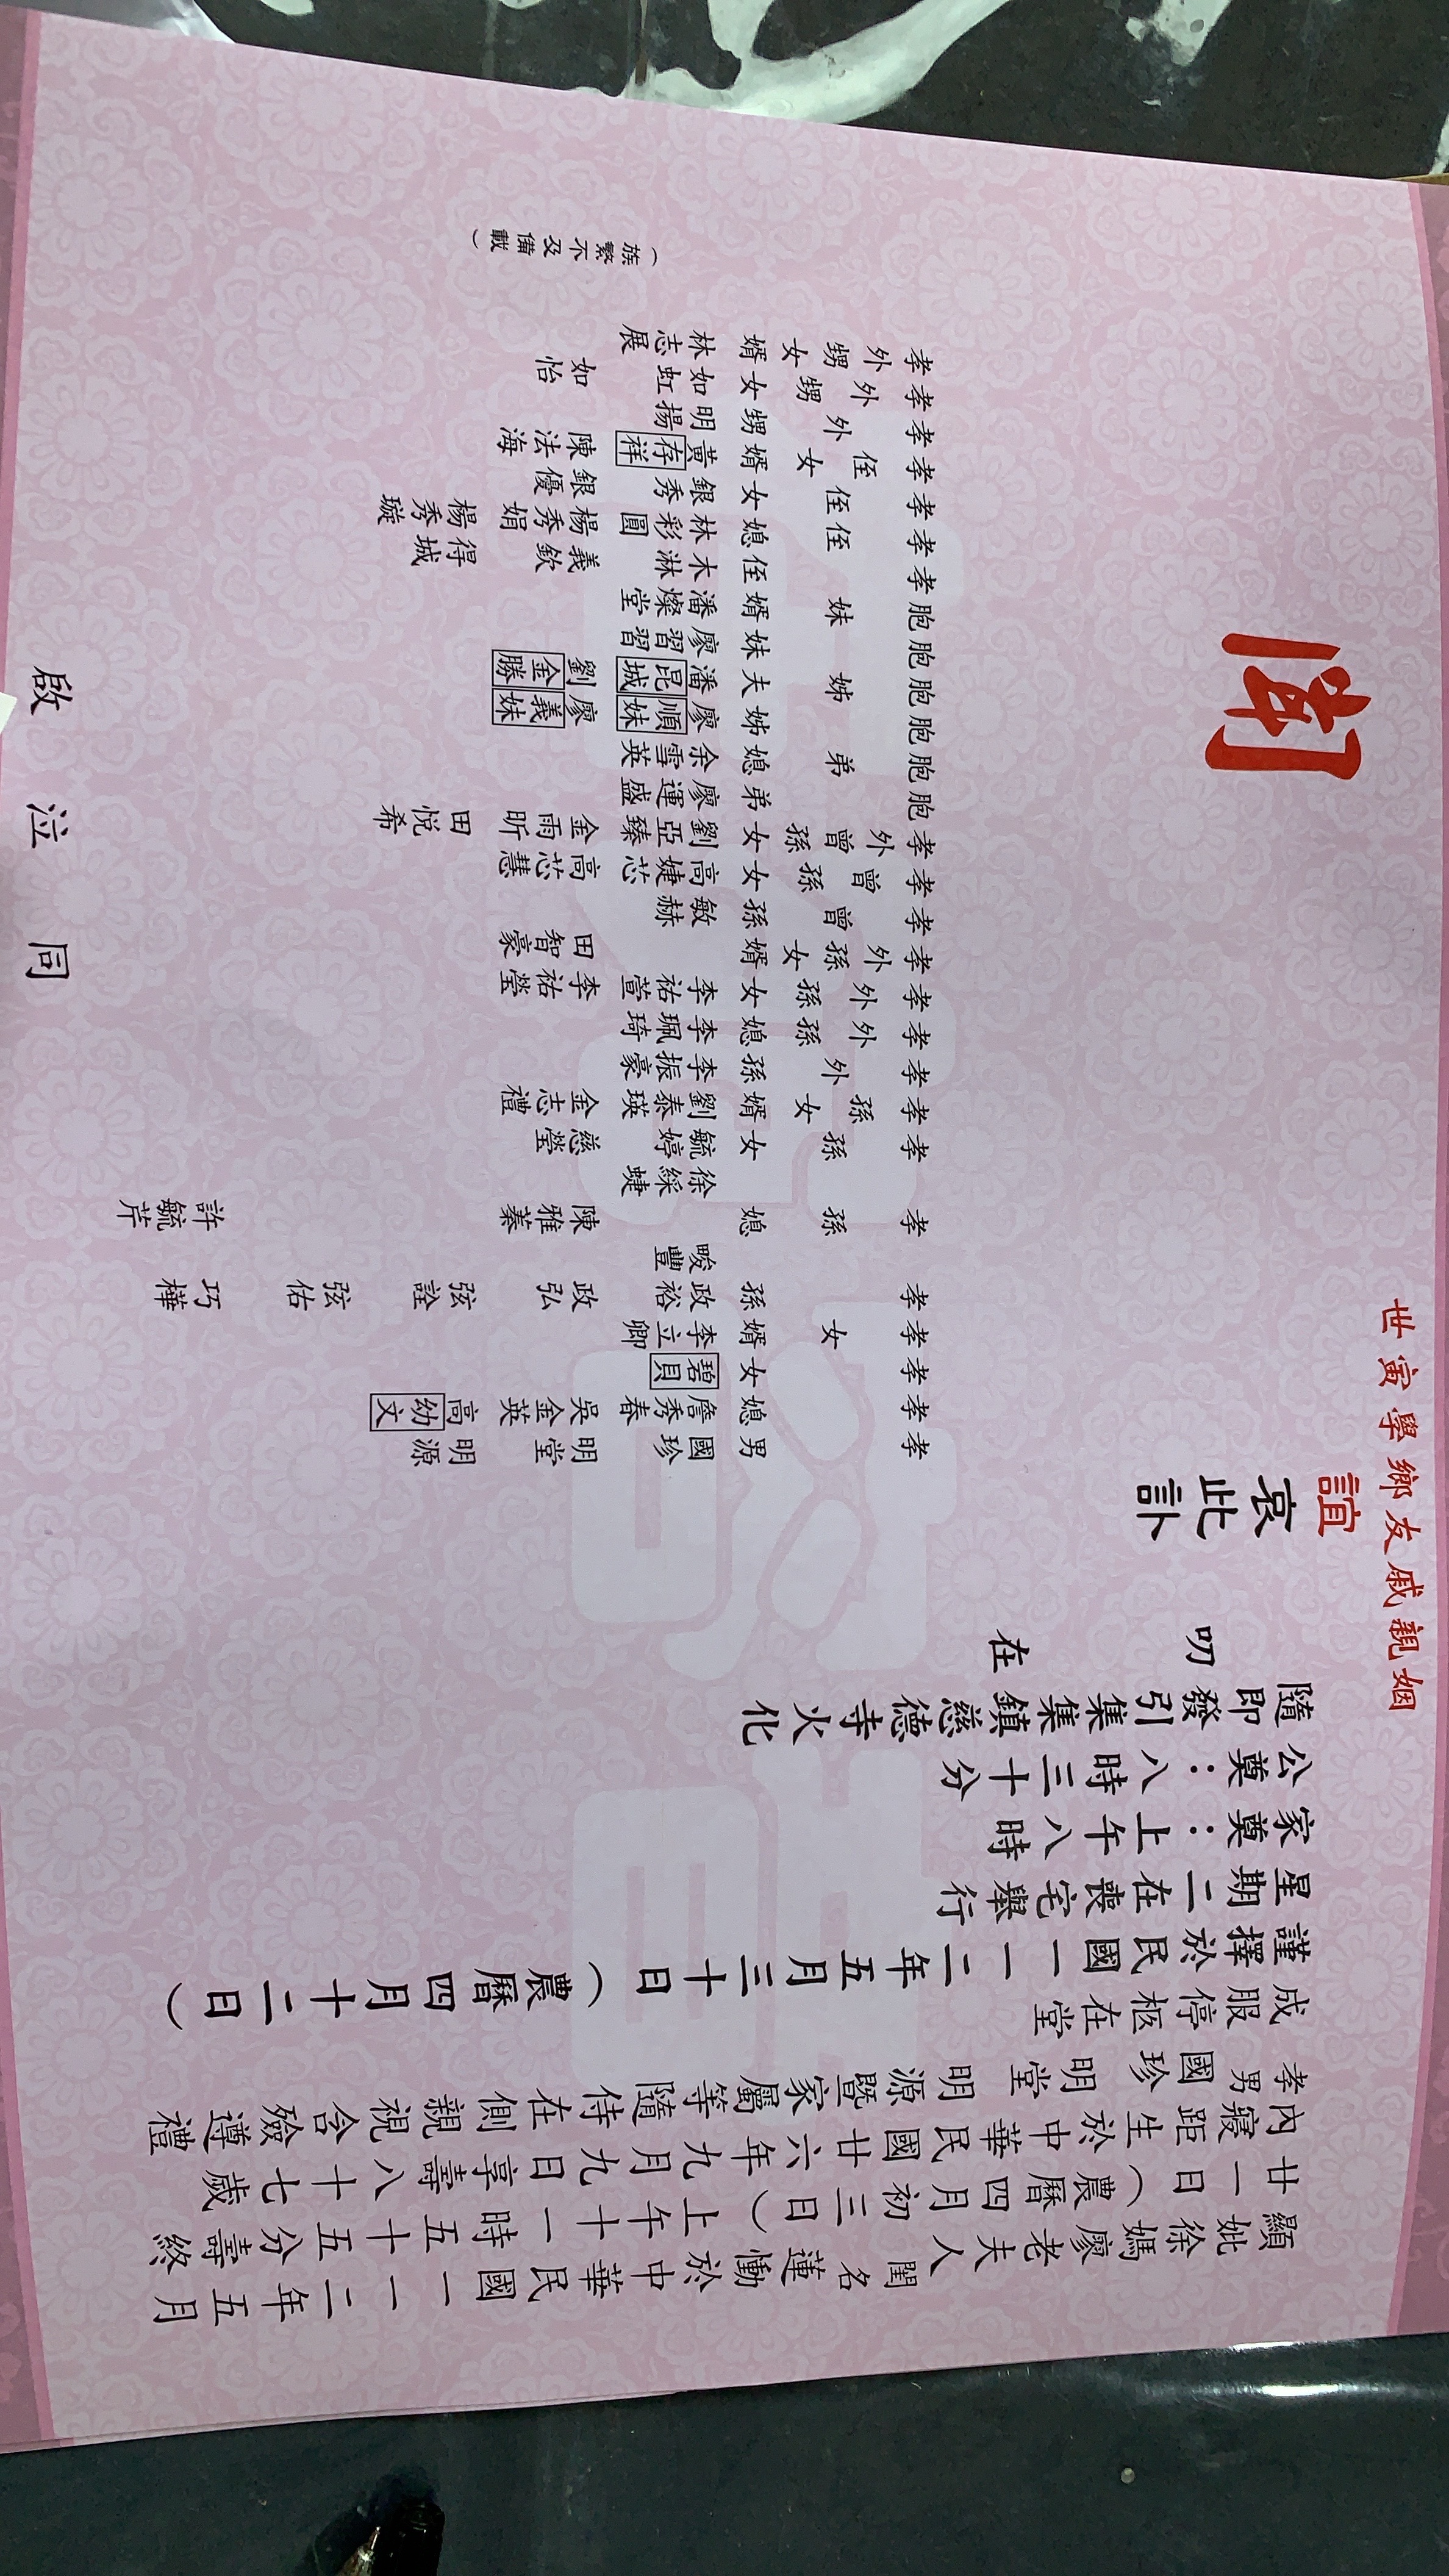 顯妣徐媽廖老夫人閨名蓮慟於中華民國一一二年五月
廿一日（農曆四月初三日）上午十一時五十五分壽終
內寢距生於中華民國廿六年九月九日享壽八十七歲
孝男國珍 明堂 明源暨家屬等隨侍在側親視含殮遵禮
成服停柩在堂
謹擇於民國一一二年五月三十日（農曆四月十二日）
星期二在喪宅舉行
家奠：上午八時
公奠：八時三十分
隨即發引集集鎮慈德寺火化
叨在
姻親戚友鄉學寅世
誼哀此訃
聞
孝男 國珍 明堂 明源
孝媳 詹秀春 吳金英 高幼文
孝女 碧貝
孝女婿 李立卿
孝孫 政裕 政弘 弦詮 弦佑 巧樺
畯豐
孝孫媳 陳雅蓁 許毓芹
徐綵蜨
孝孫女 毓婷 慈瑩
孝孫女婿 劉泰瑛 金志禮
孝外孫 李振豪
孝外孫媳 李珮琦
孝外孫女 李祐萱 李祐瑩
孝外孫女婿 田智豪
孝曾孫 敏赫
孝曾孫女 高婕芯 高芯慧
孝外曾孫女 劉亞臻 金雨昕 田悅希
胞弟 廖運盛
胞弟媳 余雪英
胞姊 廖順妹 廖義妹
胞姊夫 潘昆城 劉金勝
胞妹 廖習習
胞妹婿 潘燦堂
孝侄 木淋 義欽 得城
孝侄媳 林彩圓 楊秀娟 楊秀璇
孝侄女 銀秀 銀優
孝侄女婿 黃存祥 陳法海
孝外甥 明揚
孝外甥女 如虹 如怡
孝外甥女婿 林志展
（族繁不及備載）
同泣啟